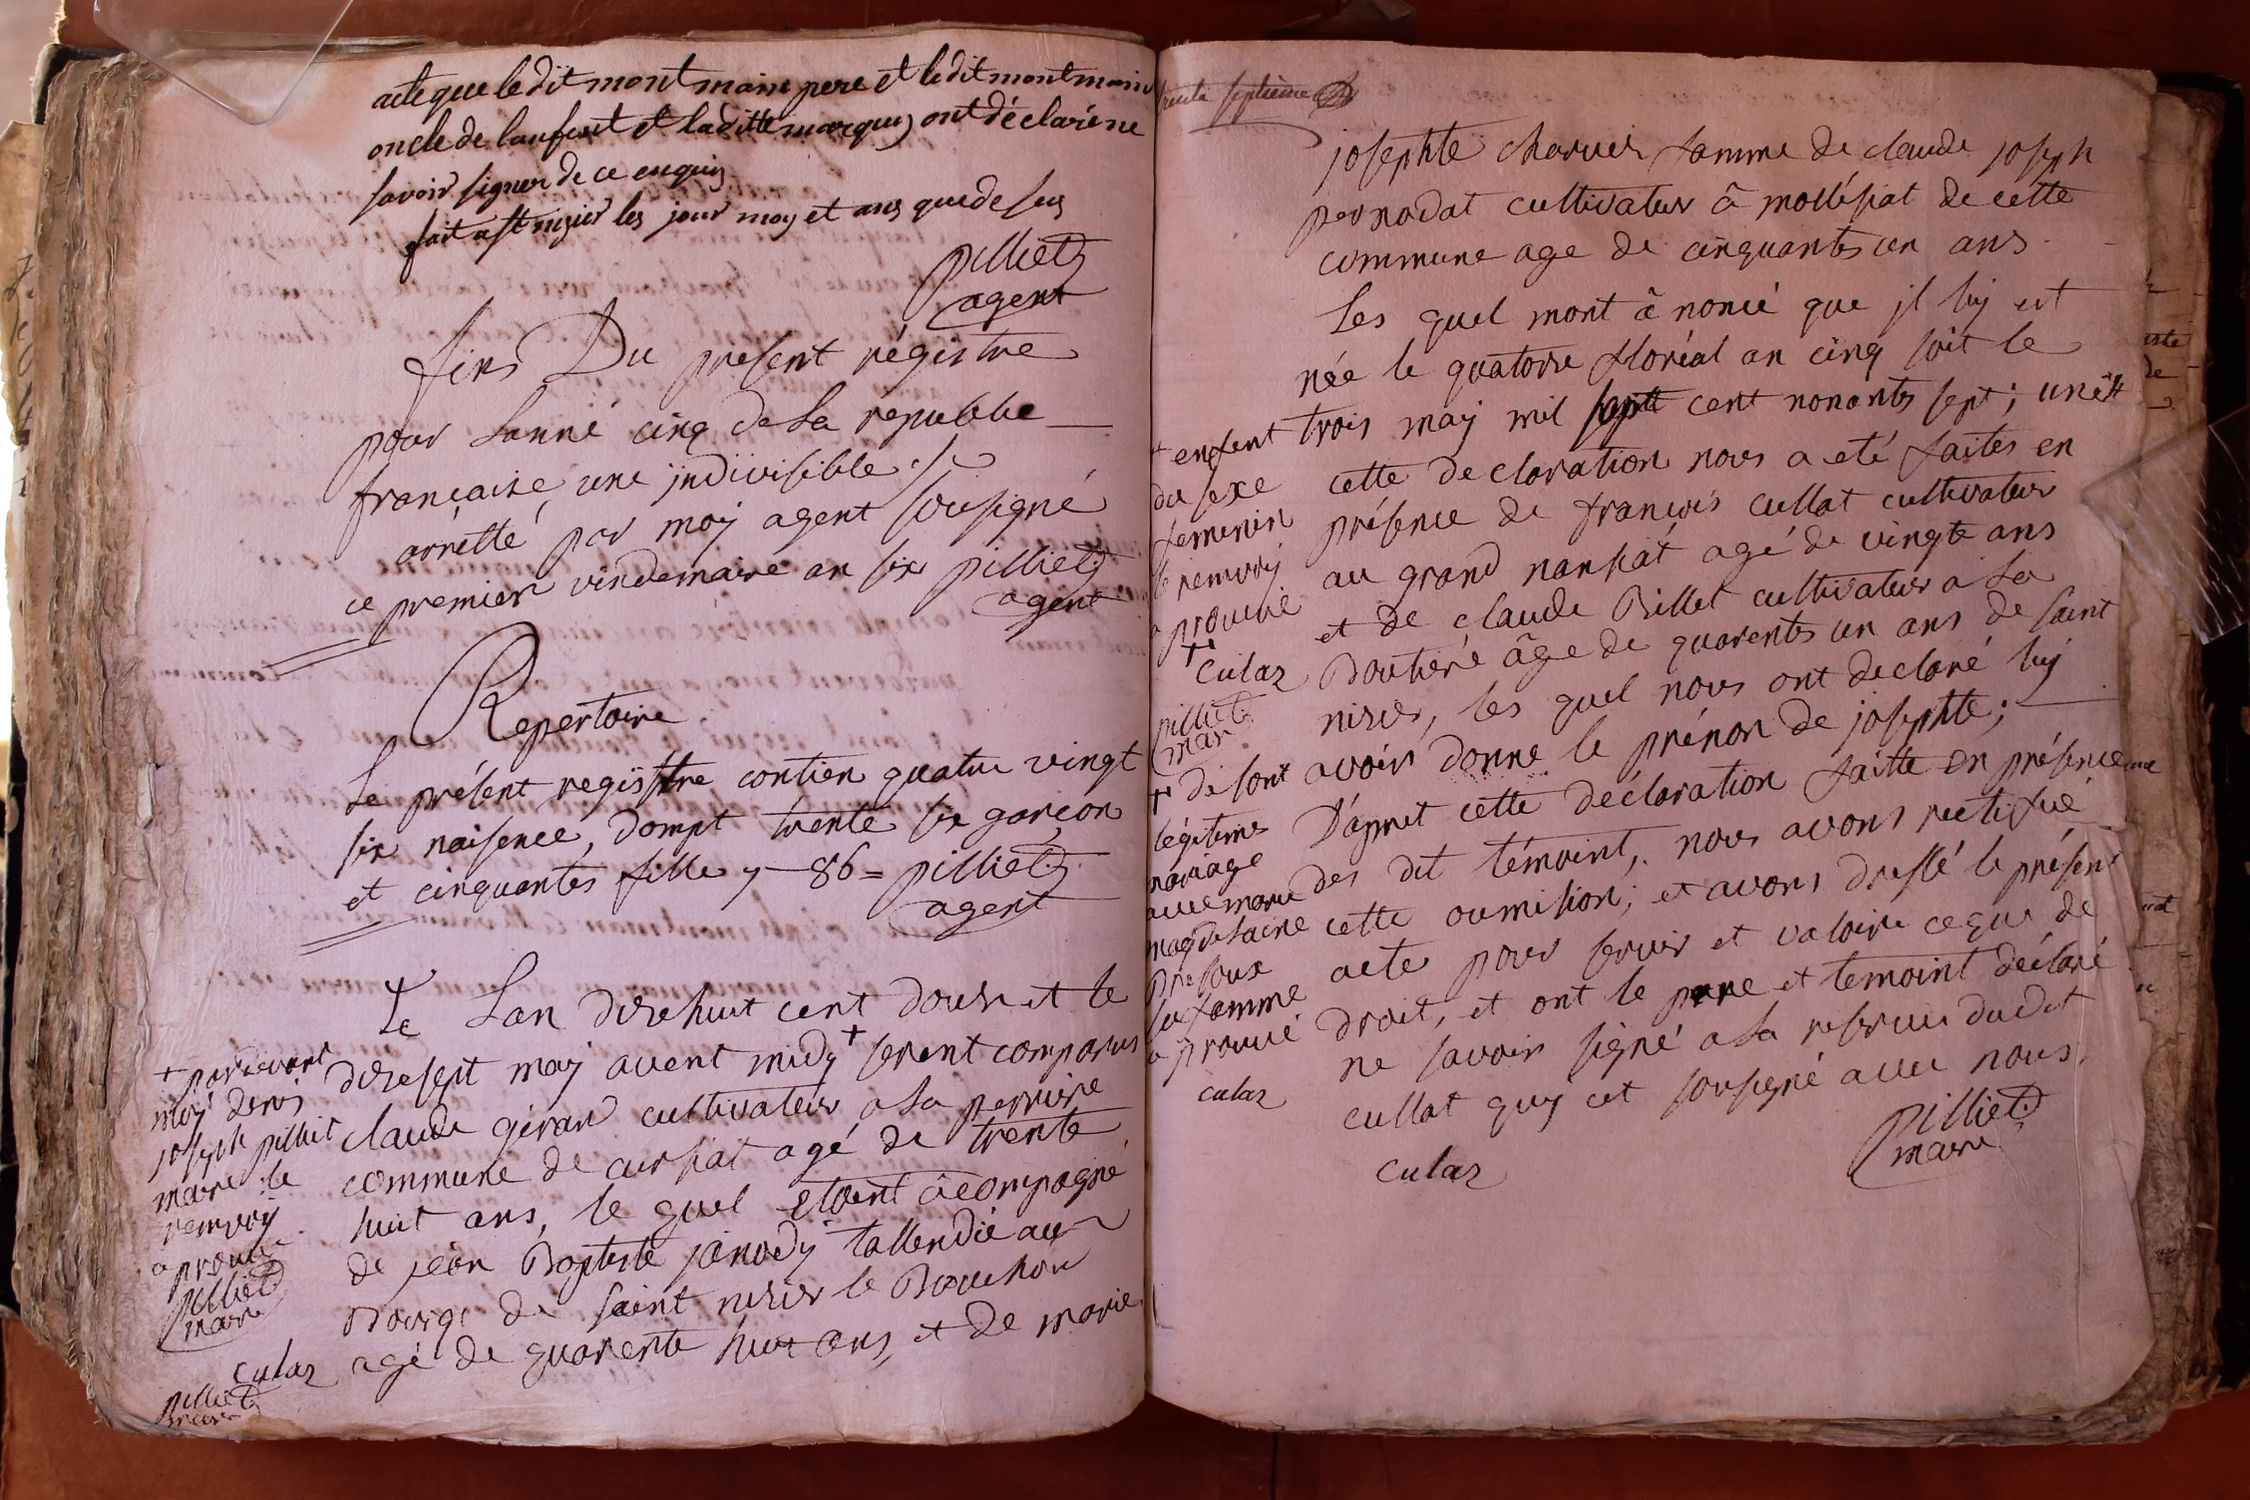 acte que le dit montmain pere et le dit montmain
oncle de lanfent et la ditte marquis ont déclaré ne
savoir signer de ce enquis
fait a st nizier les jour moy et ans que desus
pilliet
agent
fins Du present régistre
pour Lanné cinq de La republie
francaise une jndivisible
arrêtté par moÿ agent sousigné
ce premiern vindemaire an six pilliet
agent
Repertoire
Le présent regisstre contien quatre vingt
six naisence, dompt trente six garcon
et cinquantes fille y 86 = pilliet
agent
Le Lan dixe huit cent douse et le
dixesept may avent midy + serent comparus
claude géran cultivateur a La perriere
commune de curfiat agé de trente
huit ans, le quel etoent âcompagné
de jean Baptiste janody tallendié au
Bourge de saint nisier le Bouchou
agé de quarente huit ans, et de marie
+ pardevant
moÿ denis
joseph pilliet
maire le
remvoÿ
aprouve
pilliet
maire
culas
pilliet
maire
trente septieme
josephte charvet famme de claude joseph
pernodat cultivateur â mollésiat de cette
commune age de cinquantes un ans
Les quel mont â noncé que jl luÿ est
née le quatorse floréal an cinq soit le
trois maÿ mil septt cent nonantes sept; une +
cette declaration nous a eté faites en
présence de francois cullat cultivateur
au grand nansiat agé de vingte ans
et de claude Billet cultivateur a La
Boutieré âge de quarentes un ans de saint
nisier, les quel nous ont declaré luÿ
avoir donne le prénon de josephte;
D'apret cette déclaration faitte en présence
des dit témoint, nous avons rectifié
cette oumision; et avons dressé le présent
acte pour servir et valoire ceque de
droit, et ont le pere et temoint déclaré
ne savoir signé a La reserve dudit
cullat quÿ cet sousigné avec nous
pilliet
maire
culas
+ enfent
du sexe
femenin
le remvoÿ
aprouvé
culas
pilliet
mair
++ de sont
légitimes
mariage
avec marie
magdelaine
presoux
sa famme
aprouvé
culas